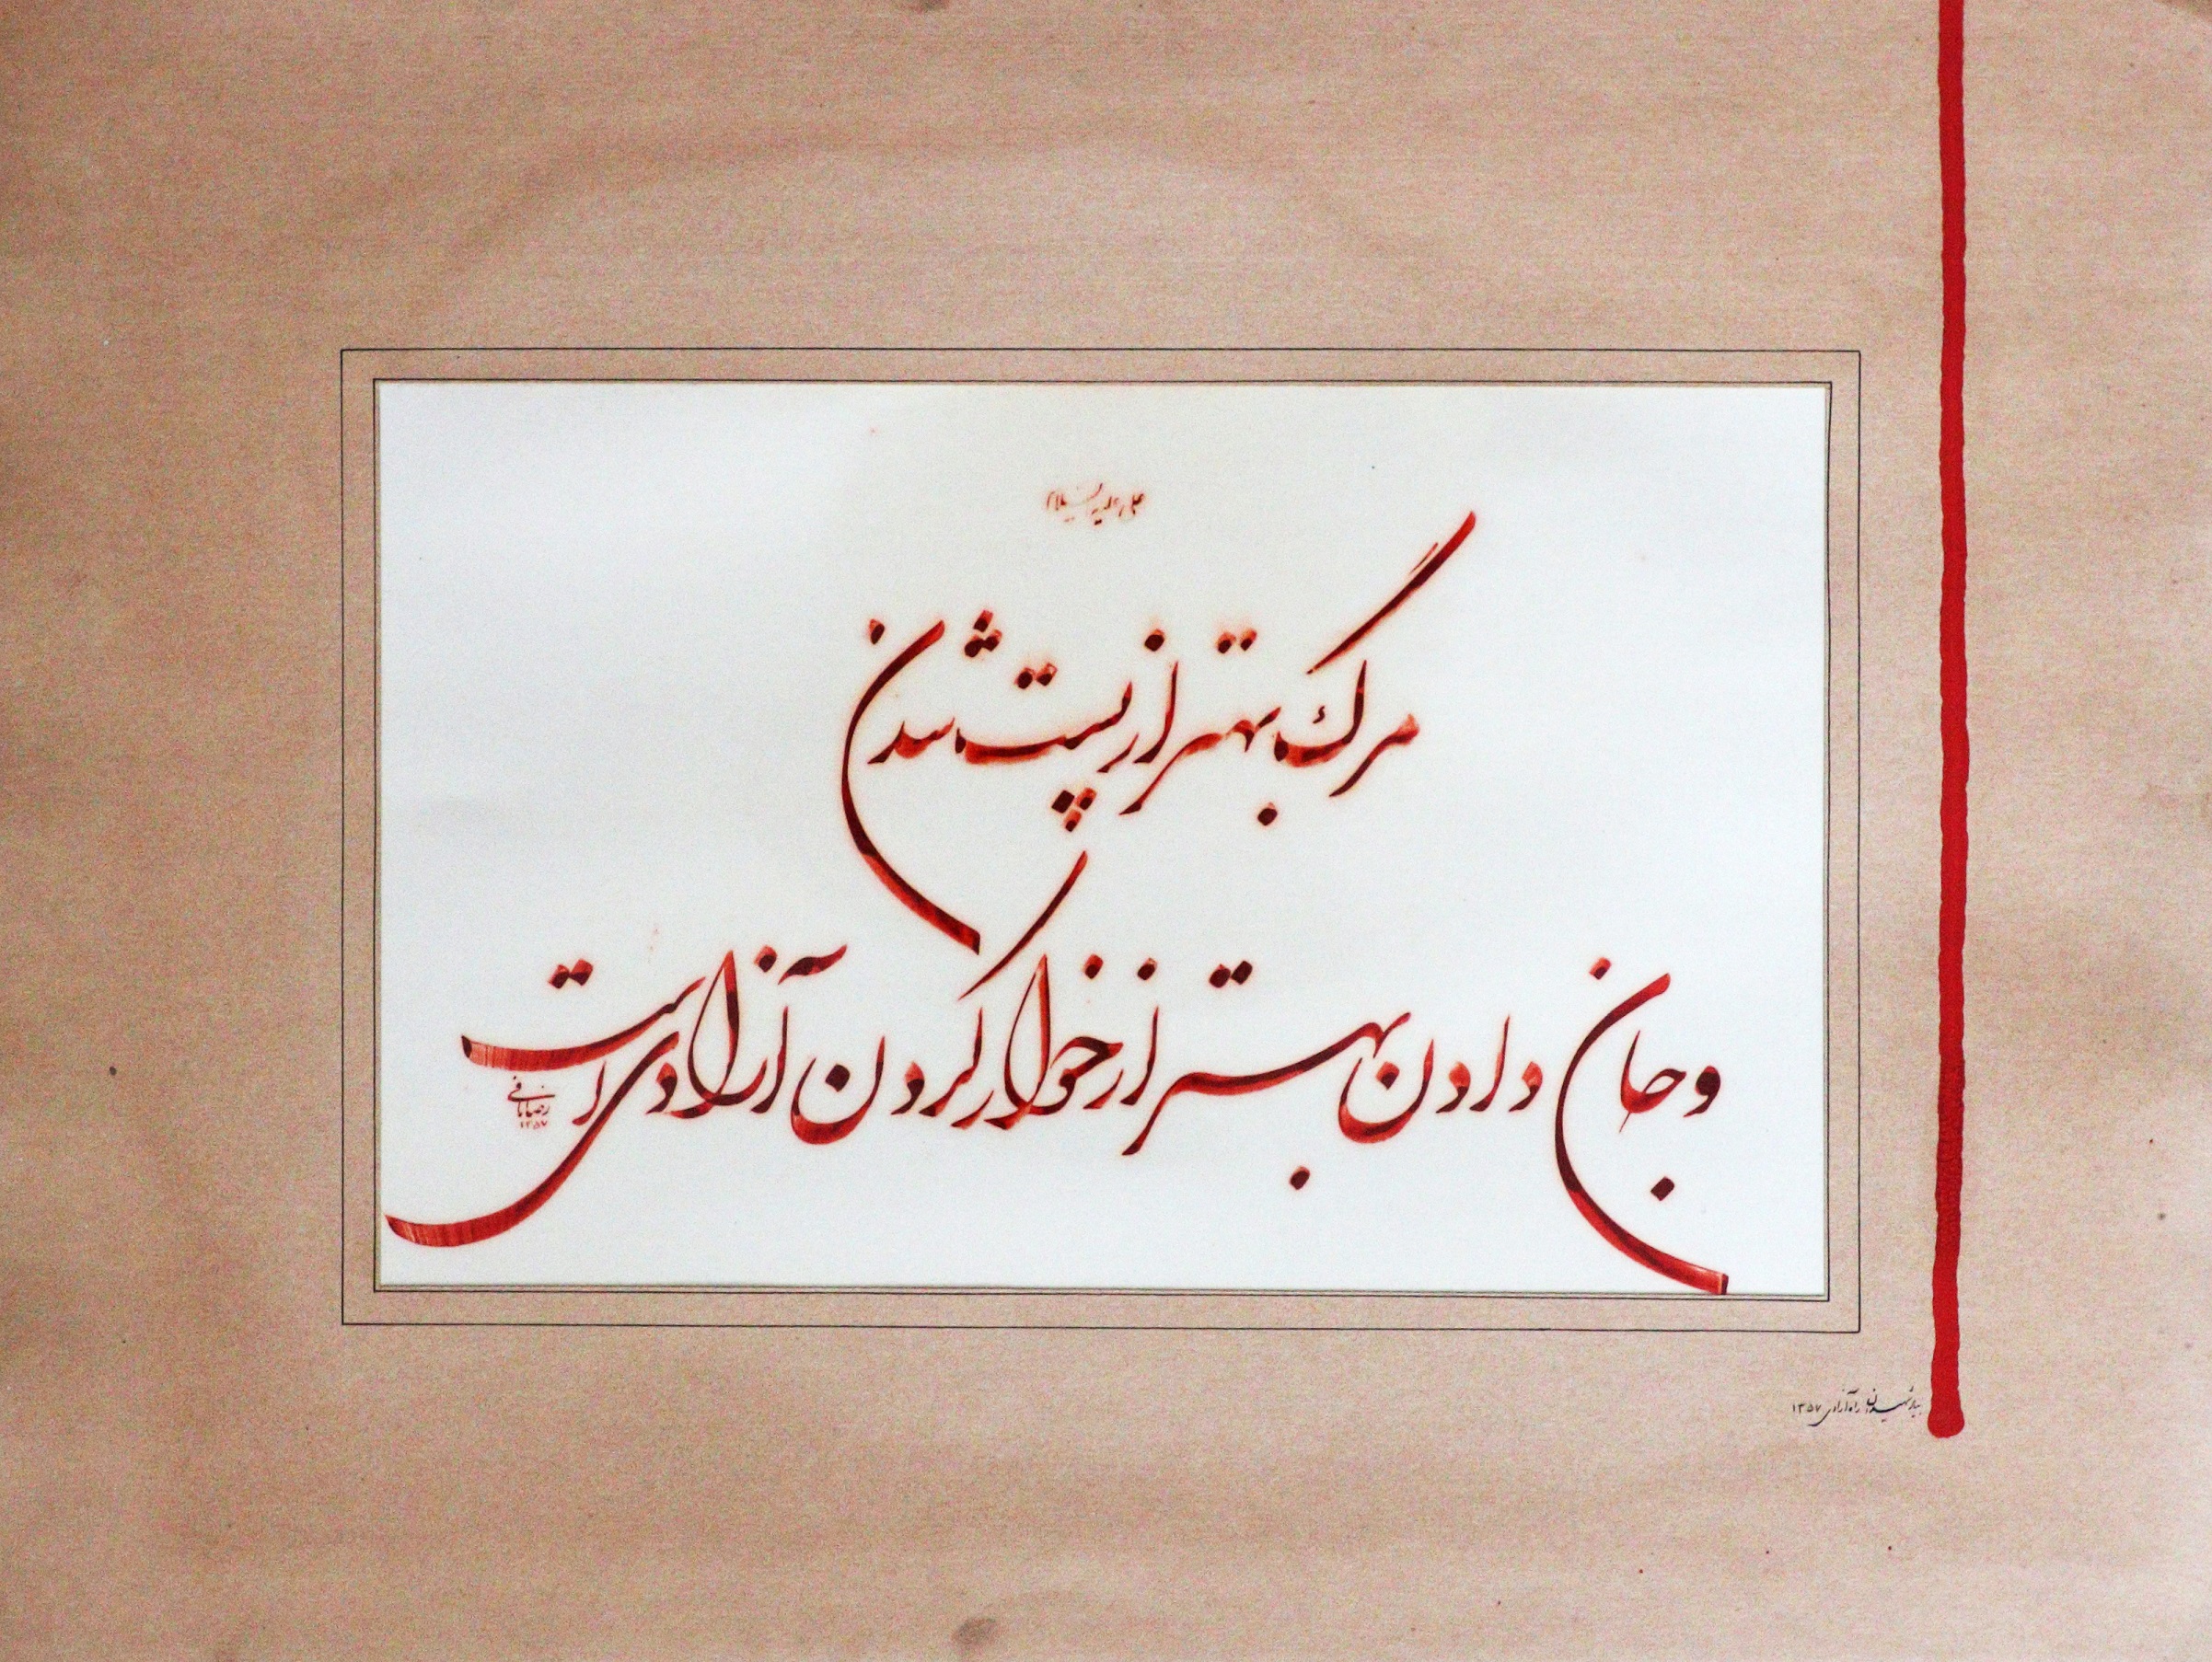 علی علیه السلام
مرگ بهتر از پست شدن
و جان دادن بهتر از خوار کردن آزادی است
رضا مافی
۱۳۵۷
بیاد شهیدان راه آزادی ۱۳۵۷